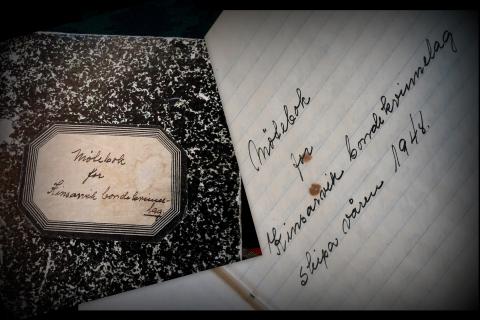 Mötebok
for
Kinsarvik bondekvinne-
lag
Mötebok
for
Kinsarvik bondekvinnelag
skipa våren 1948.